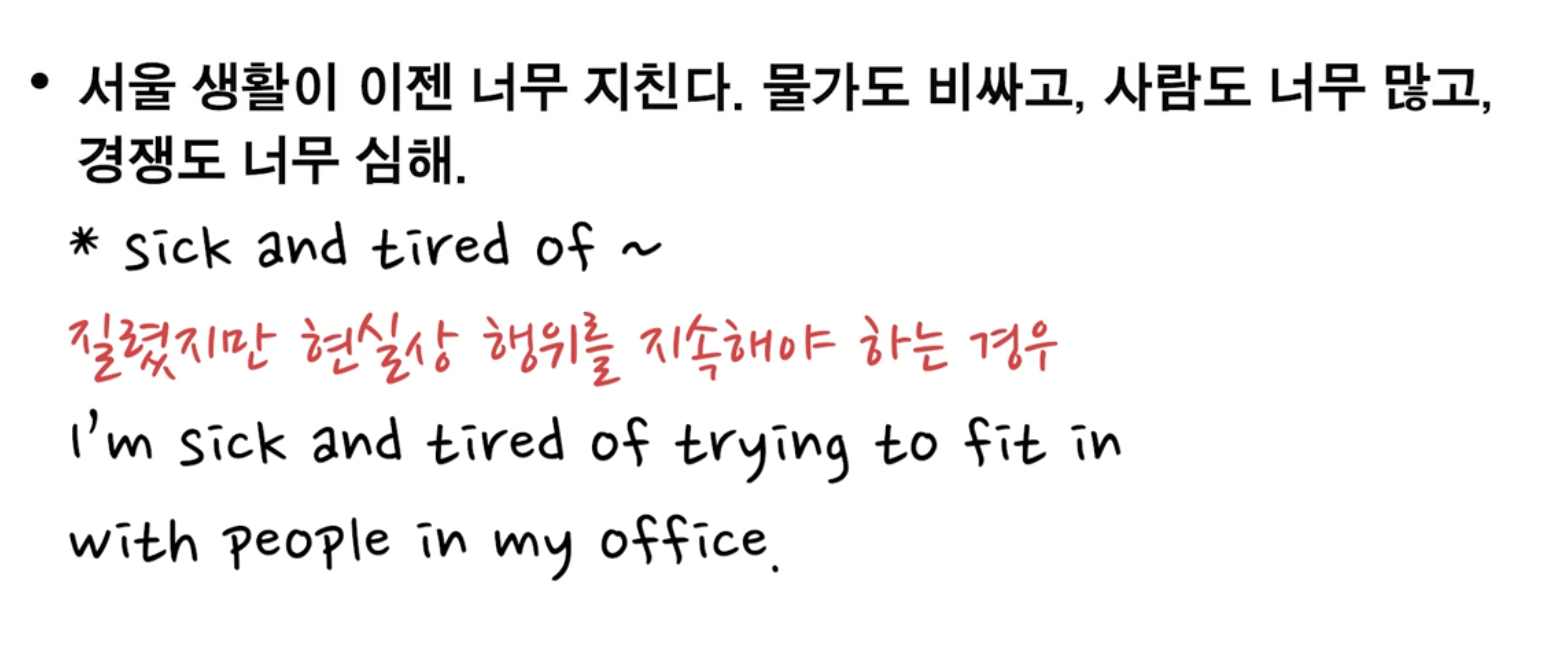 • 서울 생활이 이젠 너무 지친다. 물가도 비싸고, 사람도 너무 많고,
경쟁도 너무 심해.
* sick and tired of ~
질렸지만 현실상 행위를 지속해야 하는 경우
I'm sick and tired of trying to fit in
with people in my office.